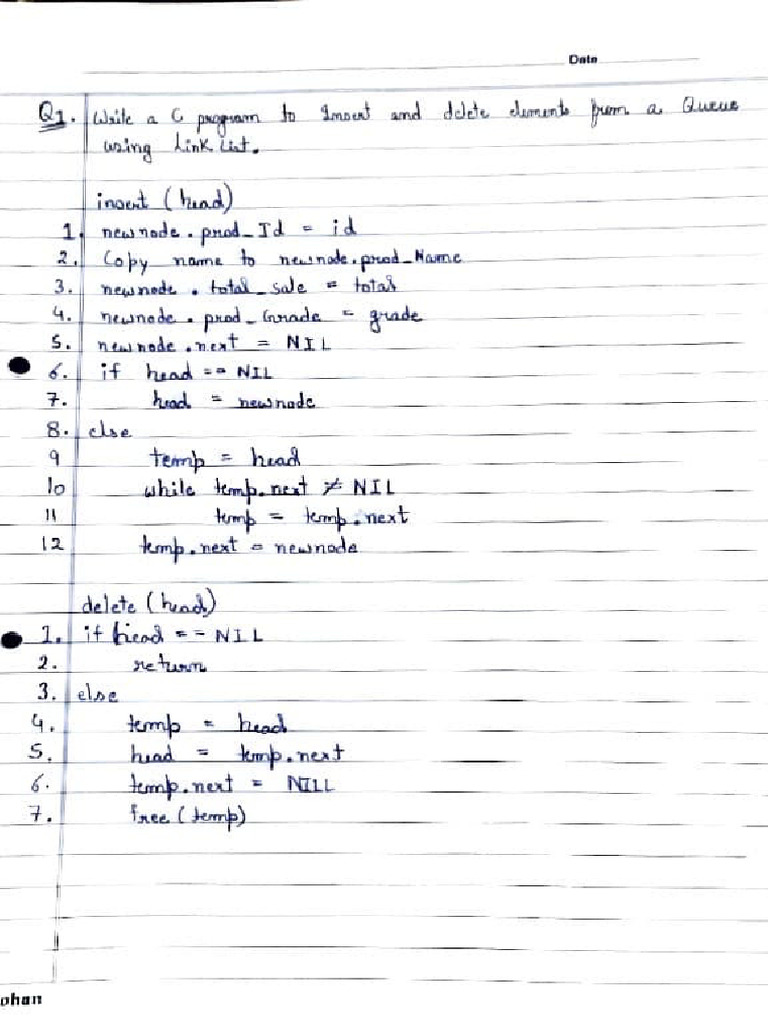 Date
Q1. Write a C program to Insert and delete elements from a Queue
using Link List.
insert (head)
1. newnode.prod_Id = id
2. Copy name to newnode.prod_Name
3. newnode.total_sale = total
4. newnode.prod_Grade = grade
5. newnode.next = NIL
6. if head == NIL
7. head = newnode
8. else
9 temp = head
10 while temp.next ≠ NIL
11 temp = temp.next
12 temp.next = newnode
delete (head)
1. if head == NIL
2. return
3. else
4. temp = head
5. head = temp.next
6. temp.next = NILL
7. free (temp)
ohan